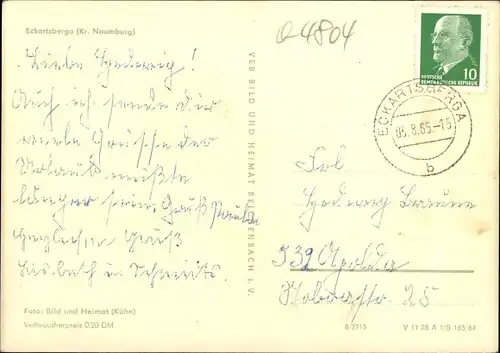 Eckartsberga (Kr. Naumburg)
Q 4804
Liebe Hedwig!
Auch ich sende dir
viele Grüsse der
Urlaub müßte
länger sein Gruß Paula
Gruß
Lisbeth u.
Foto: Bild und Heimat (Kühn)
Verbraucherpreis 0,20 DM
VEB BILD UND HEIMAT REICHENBACH i. V.
10
DEUTSCHE
DEMOKRATISCHE REPUBLIK
ECKARTSBERGA
05.8.65-15
b
Frl
Hedwig Braune
532 Apolda
25
8/2715
V 11 28 A 1/B 165/64